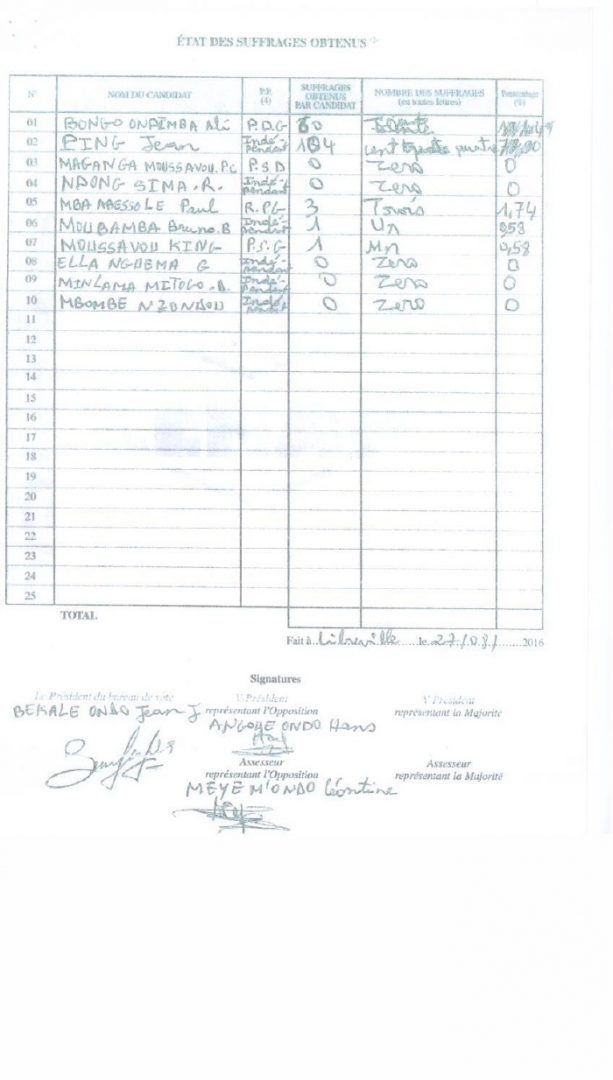 ÉTAT DES SUFFRAGES OBTENUS
N° NOM DU CANDIDAT P.P. (4) SUFFRAGES OBTENUS PAR CANDIDAT NOMBRE DES SUFFRAGES (en toutes lettres) Pourcentage (%)
01 BONGO ONDIMBA Ali P.D.G
02 PING Jean Indé-pendant 104 cent quatre
03 MAGANGA MOUSSAVOU.PC P.S.D 0 Zero 0
04 NDONG SIMA.R. Indé-pendant 0 Zero 0
05 MBA ABESSOLE Paul R.PG 3 Trois 1,74
06 MOUBAMBA Bruno.B Indé-pendant 1 Un 0,58
07 MOUSSAVOU KING P.S.G 1 Un 0,58
08 ELLA NGUEMA G Indé-pendant 0 Zero 0
09 MINLAMA MITOGO. Indé-pendant 0 Zero 0
10 MBOMBE NZONDOU Indé-pendant 0 Zero 0
11
12
13
14
15
16
17
18
19
20
21
22
23
24
25
TOTAL
Fait à Libreville le 27/08/ 2016
Signatures
Le Président du bureau de vote V-Président représentant l'Opposition V-Président représentant la Majorité
BEKALE ONDO Jean J
ANGOUE ONDO Hans
Assesseur représentant l'Opposition Assesseur représentant la Majorité
MEYE M'ONDO Léontine